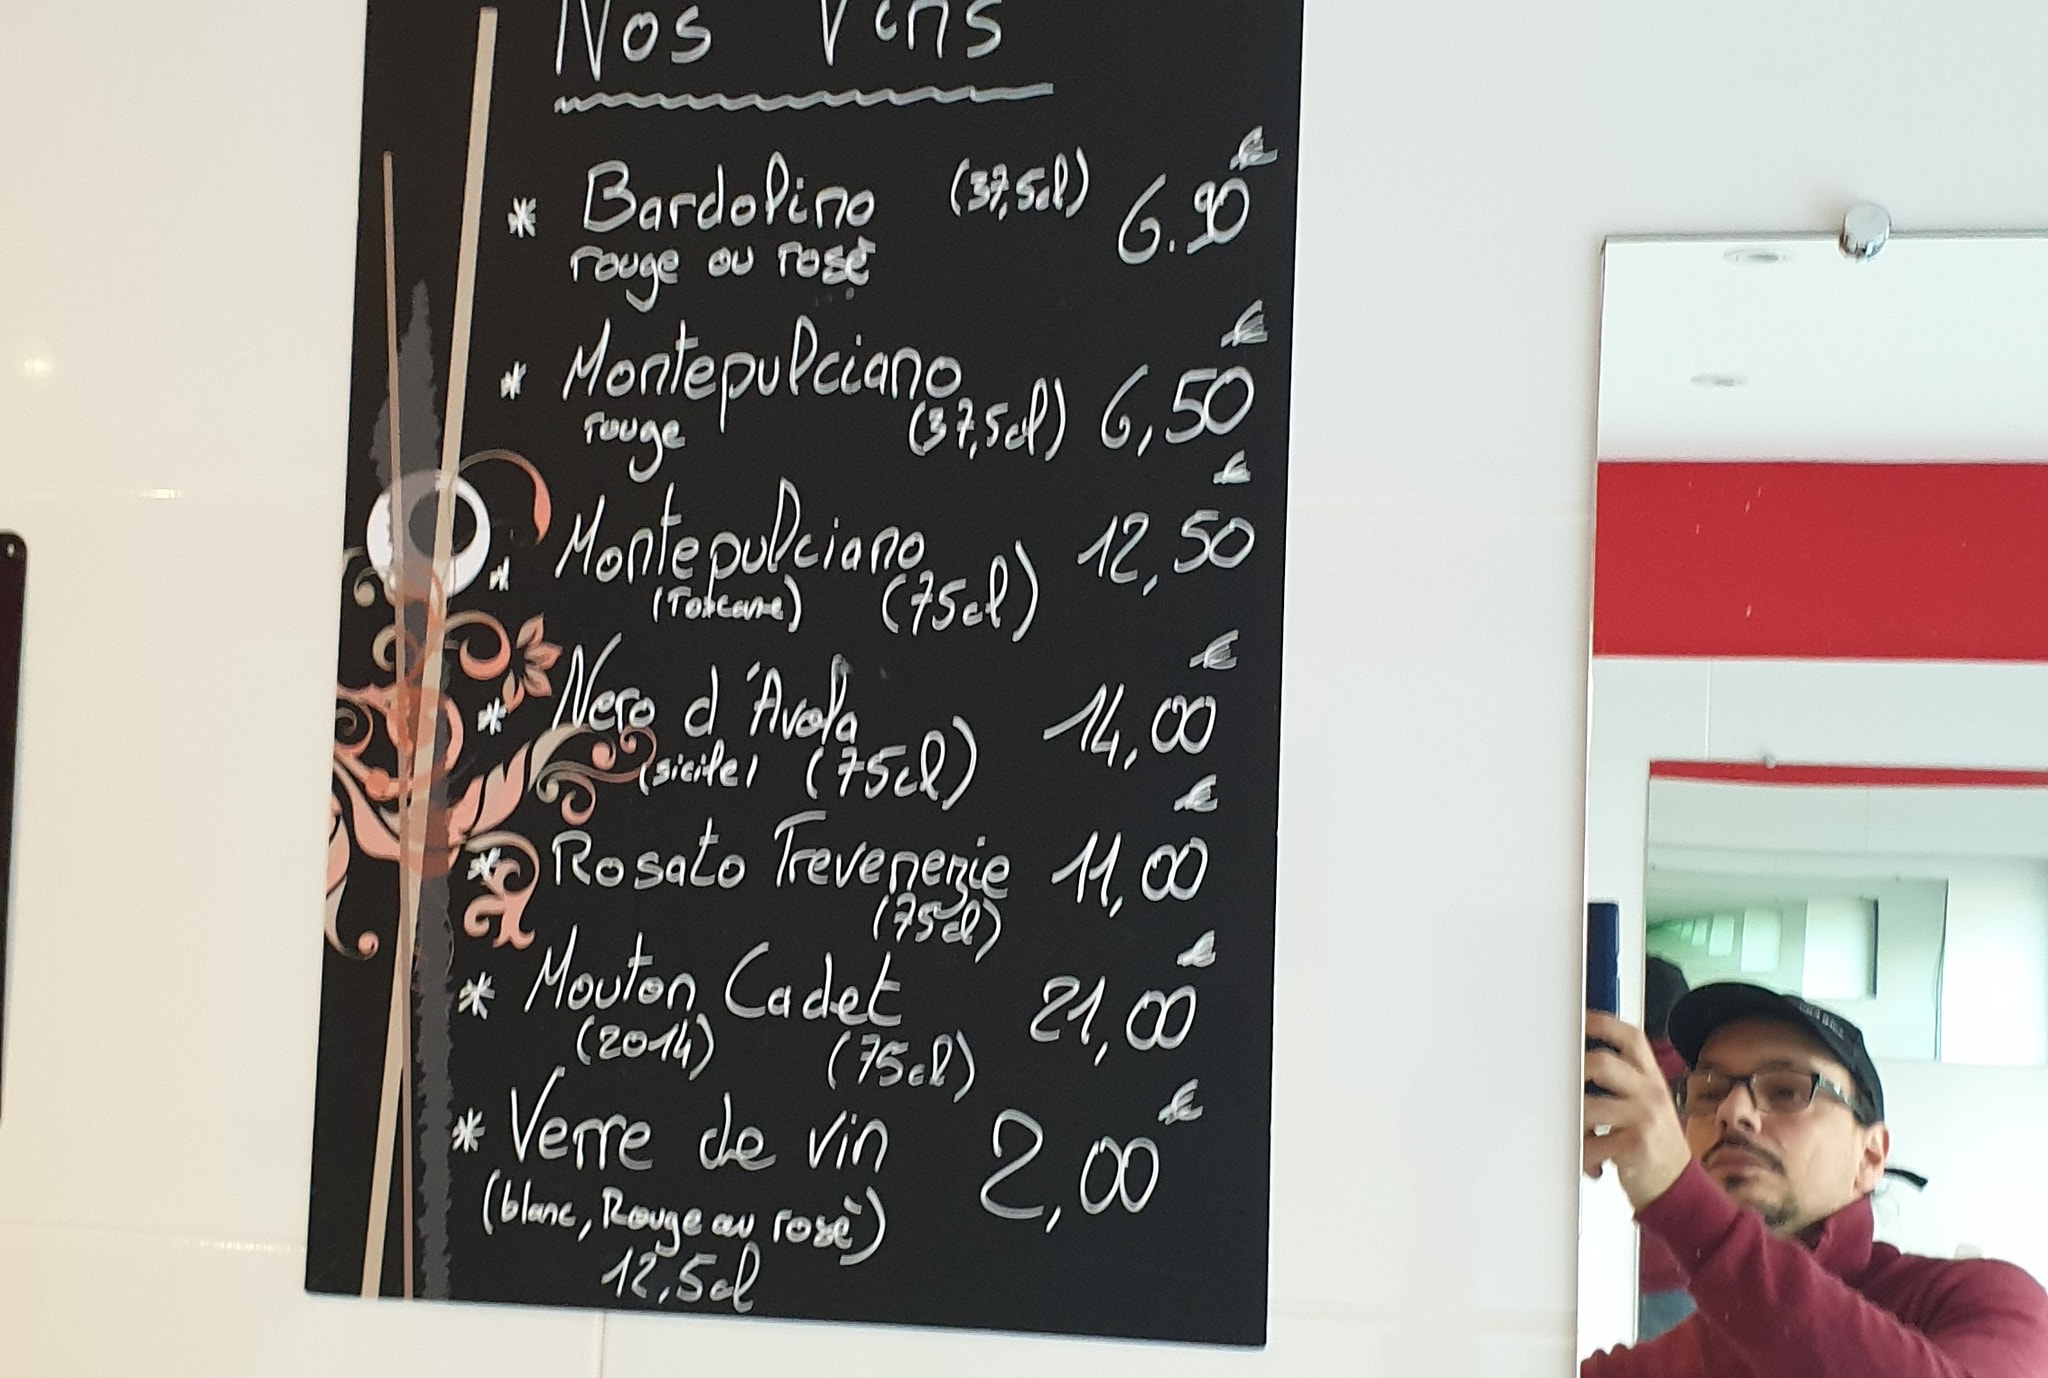 Nos Vins
* Bardolino (37,5cl) 6.90€
rouge ou rosé
* Montepulciano 6,50€
rouge (37,5cl)
* Montepulciano 12,50€
(Toscane) (75cl)
* Nero d'Avola 14,00€
(sicile) (75cl)
* Rosato Trevenezie 11,00€
(75cl)
* Mouton Cadet 21,00€
(2014) (75cl)
* Verre de vin 2,00€
(blanc, Rouge ou rosé)
12,5cl